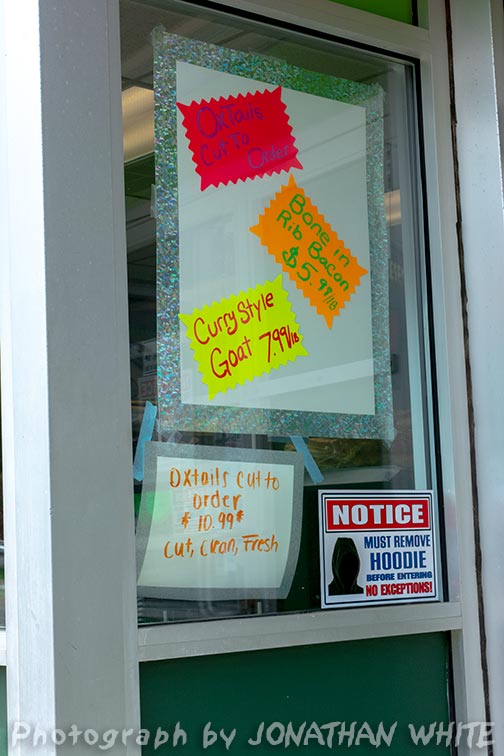 OxTails
Cut To
Order
Bone in
Rib Bacon
$5.99/lb
Curry Style
Goat 7.99/lb
Oxtails cut to
order
$ 10.99#
Cut, Clean, Fresh
NOTICE
MUST REMOVE
HOODIE
BEFORE ENTERING
NO EXCEPTIONS!
Photograph by JONATHAN WHITE